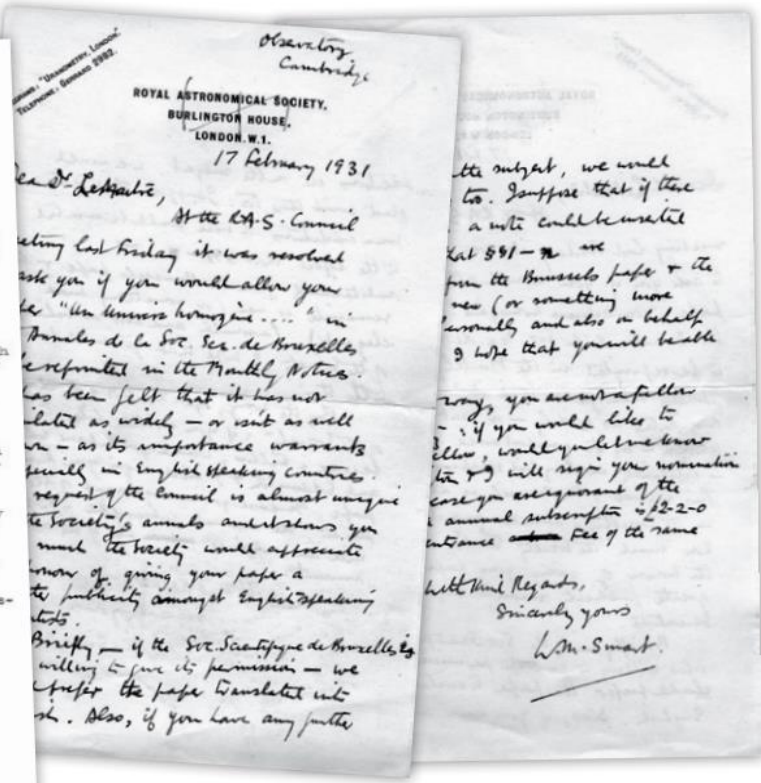 "URANOMETRY, LONDON"
TELEPHONE: GERRARD 2982.
Observatory
Cambridge
ROYAL ASTRONOMICAL SOCIETY,
BURLINGTON HOUSE,
LONDON. W.1.
17 February 1931
Dear Dr. Lemaître,
At the R.A.S. Council
eting last Friday it was resolved
ask you if you would allow your
er "Un Univers homogène...." in
Annales de la Soc. Sci. de Bruxelles
be reprinted in the Monthly Notices.
has been felt that it has not
ulated as widely — or isn't as well
wn — as its importance warrants
pecially in English speaking countries.
request of the Council is almost unique
the Society's annals and it shows you
much the Society would appreciate
honour of giving your paper a
ter publicity amongst English speaking
tists.
Briefly — if the Soc. Scientifique de Bruxelles is
willing to give its permission — we
prefer the paper translated into
sh. Also, if you have any further
the subject, we would
too. I suppose that if there
a note could be inserted
hat §§1 — n are
from the Brussels paper & the
new (or something more
ersonally and also on behalf
I hope that you will be able
wrong, you are not a fellow
; if you would like to
ellow, would you let me know
ton & I will sign your nomination
case you are ignorant of the
annual subscription is £2-2-0
entrance fee of the same
With kind Regards,
Sincerely yours
W.M. Smart.